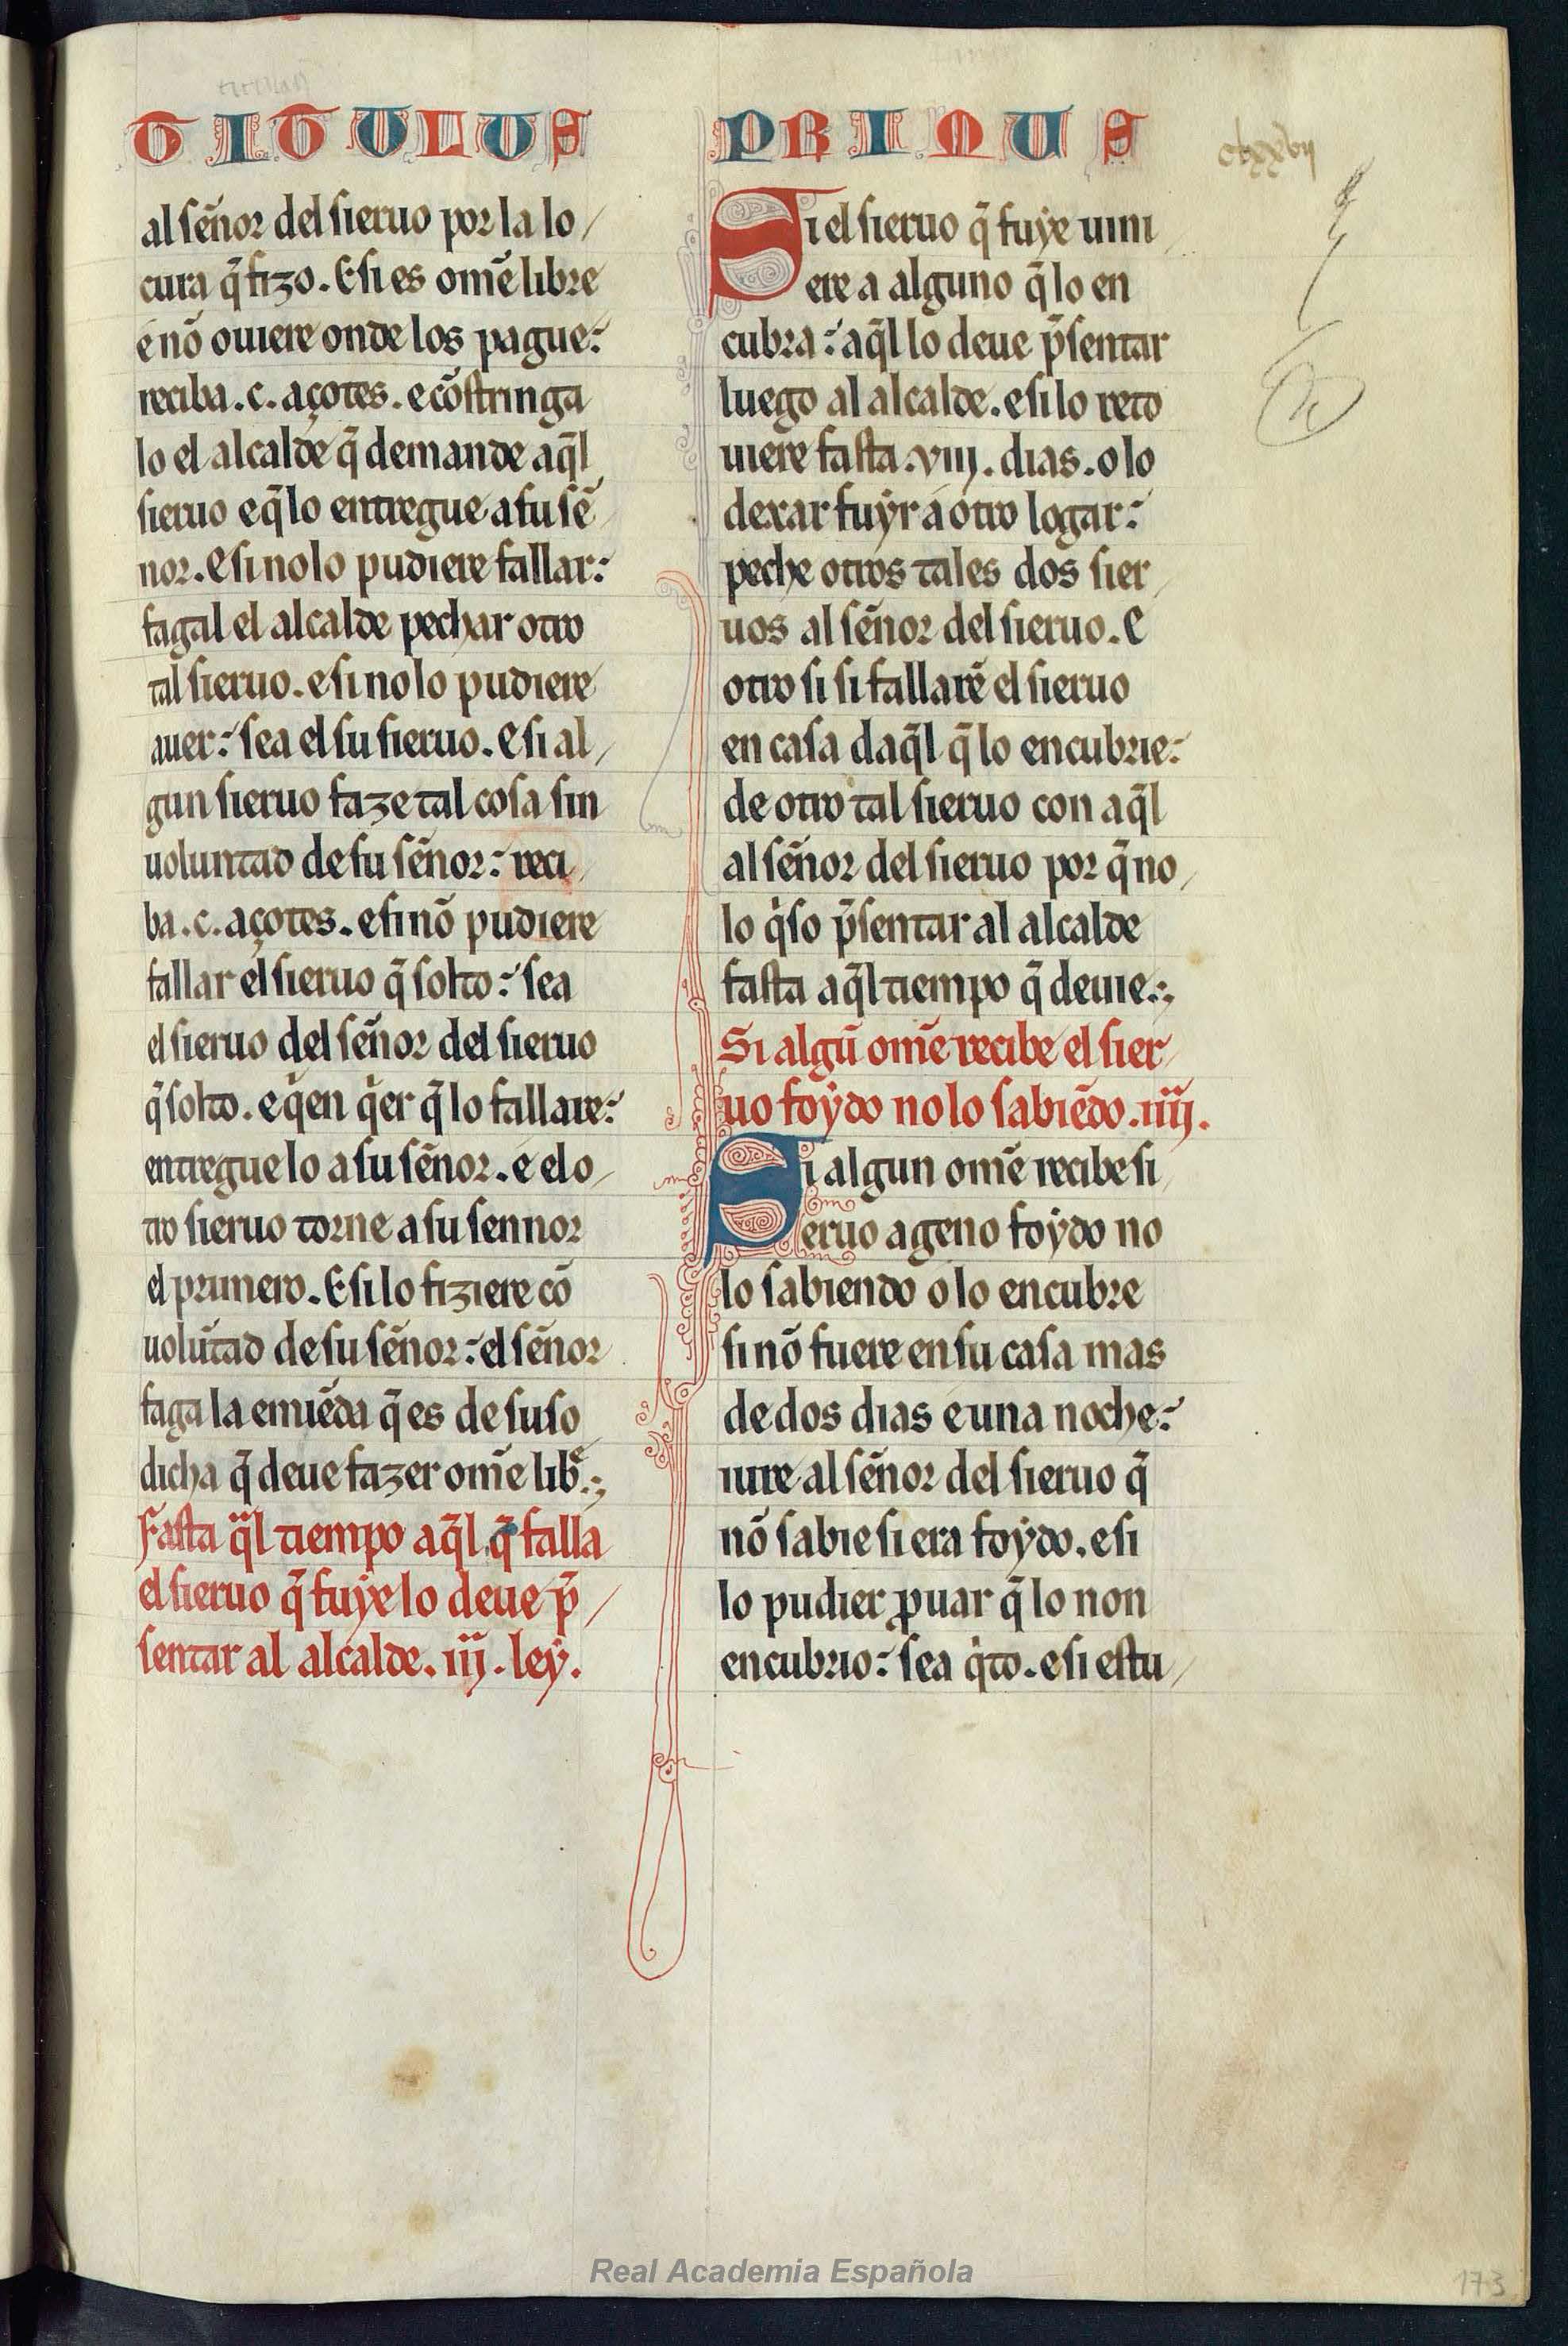 TITULUS PRIMUS
al sẽnor del sieruo por la lo/
cura q̃ fizo. E si es omẽ libre
e nõ ouiere onde los pague:
reciba .c. açotes. e cõstringa
lo el alcalde q̃ demande aq̃l
sieruo e q̃ lo entregue a su sẽ
nor. E si no lo pudiere fallar:
fagal el alcalde pechar otro
tal sieruo. e si no lo pudiere
auer: sea el su sieruo. E si al/
gun sieruo faze tal cosa sin
uoluntad de su sẽnor: reci/
ba .c. açotes. e si nõ pudiere
fallar el sieruo q̃ solto: sea
el sieruo del sẽnor del sieruo
q̃ solto. e qien qier q̃ lo fallare:
entregue lo a su sẽnor. e el o/
tro sieruo torne a su sennor
el primero. E si lo fiziere cõ
uolũtad de su sẽnor: el sẽnor
faga la emiẽda q̃ es de suso
dicha q̃ deue fazer omẽ libᵉ.;
Fasta q̃l tiempo aq̃l q̃ falla
el sieruo q̃ fuẏe lo deue p̃/
sentar al alcalde. iii. leẏ.
Si el sieruo q̃ fuẏe uini/
ere a alguno q̃ lo en
cubra: aq̃l lo deue p̃sentar
luego al alcalde. e si lo reto
uiere fasta .viii. dias. o lo
dexar fuẏr a otro logar:
peche otros tales dos sier/
uos al sẽnor del sieruo. E
otro si si fallarẽ el sieruo
en casa daq̃l q̃ lo encubrie:
de otro tal sieruo con aq̃l
al sẽnor del sieruo por q̃ no/
lo qⁱso p̃sentar al alcalde
fasta aq̃l tiempo q̃ deuie.;
Si algũ omẽ recibe el sier/
uo foẏdo no lo sabiẽdo .iiii.
Si algun omẽ recibe si/
eruo ageno foẏdo no
lo sabiendo o lo encubre
si nõ fuere en su casa mas
de dos dias e una noche:
iure al sẽnor del sieruo q̃
nõ sabie si era foẏdo. e si
lo pudier ꝓuar q̃ lo non
encubrio: sea qⁱto. e si estu/
Real Academia Española
173